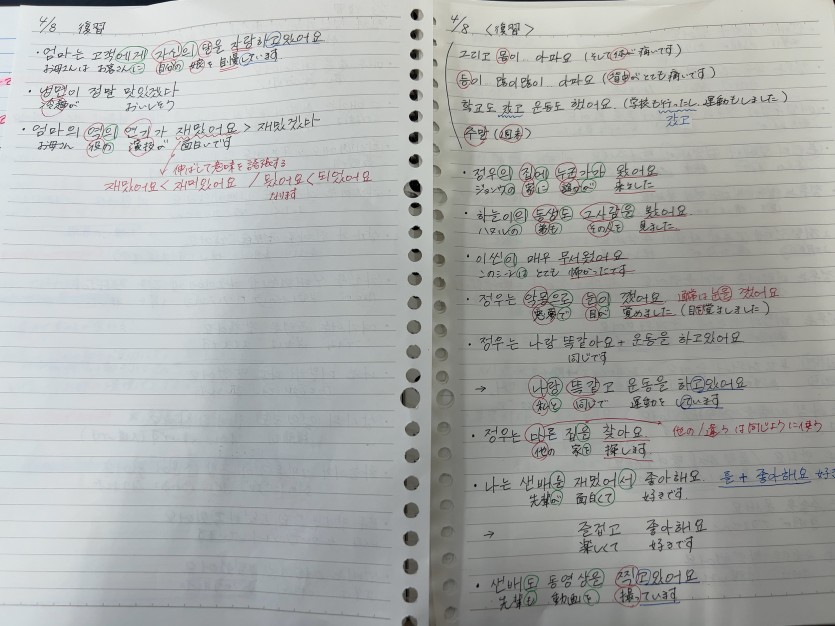 4/8 復習
・엄마는 고객에게 자신의 딸을 자랑하고있어요
お母さんは お客さんに 自分の 娘を 自慢しています
・냉면이 정말 맛있겠다
冷麺が おいしそう
・엄마의 역의 연기가 재밌어요 > 재밌겠다
お母さん 役の 演技が 面白いです
伸ばして意味を誇張する
재밌어요 < 재미있어요 / 됐어요 < 되었어요
なります
4/8 〈復習〉
그리고 몸이 아파요 (そして体が痛いです)
등이 많이많이 아파요 (背中がとても痛いです)
학교도 갔고 운동도 했어요 (学校も行ったし、運動もしました)
갔고
주말 (週末)
・정우의 집에 누군가가 왔어요
ジョンウの 家に 誰かが 来ました
・하늘이의 동생도 그사람을 봤어요
ハヌルの 弟も その人を 見ました
・이씬이 매우 무서웠어요
このシーンは とても 怖かったです
・정우는 악몽으로 눈이 깼어요 通常は눈을 깼어요
悪夢で 目が 覚めました (目を覚ましました)
・정우는 나랑 똑같아요 + 운동을 하고있어요
同じです
→ 나랑 똑같고 운동을 하고있어요
私と 同じで 運動を しています
・정우는 다른 집을 찾아요 他の/違う は同じように使う
他の 家を 探します
・나는 선배는 재밌어서 좋아해요 을 + 좋아해요 好き
先輩が 面白くて 好きです
→ 즐겁고 좋아해요
楽しくて 好きです
・선배도 동영상을 찍고있어요
先輩も 動画を 撮っています